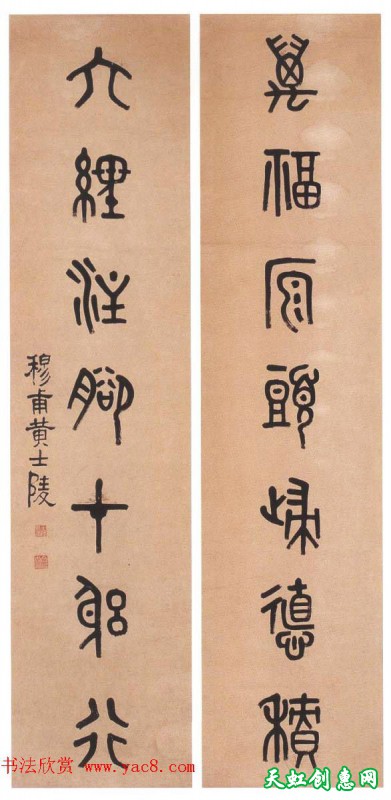 萬福原頭歸德積
六經注腳在躳行
穆甫黄士陵
书法欣赏 www.yac8.com
天虹创惠网